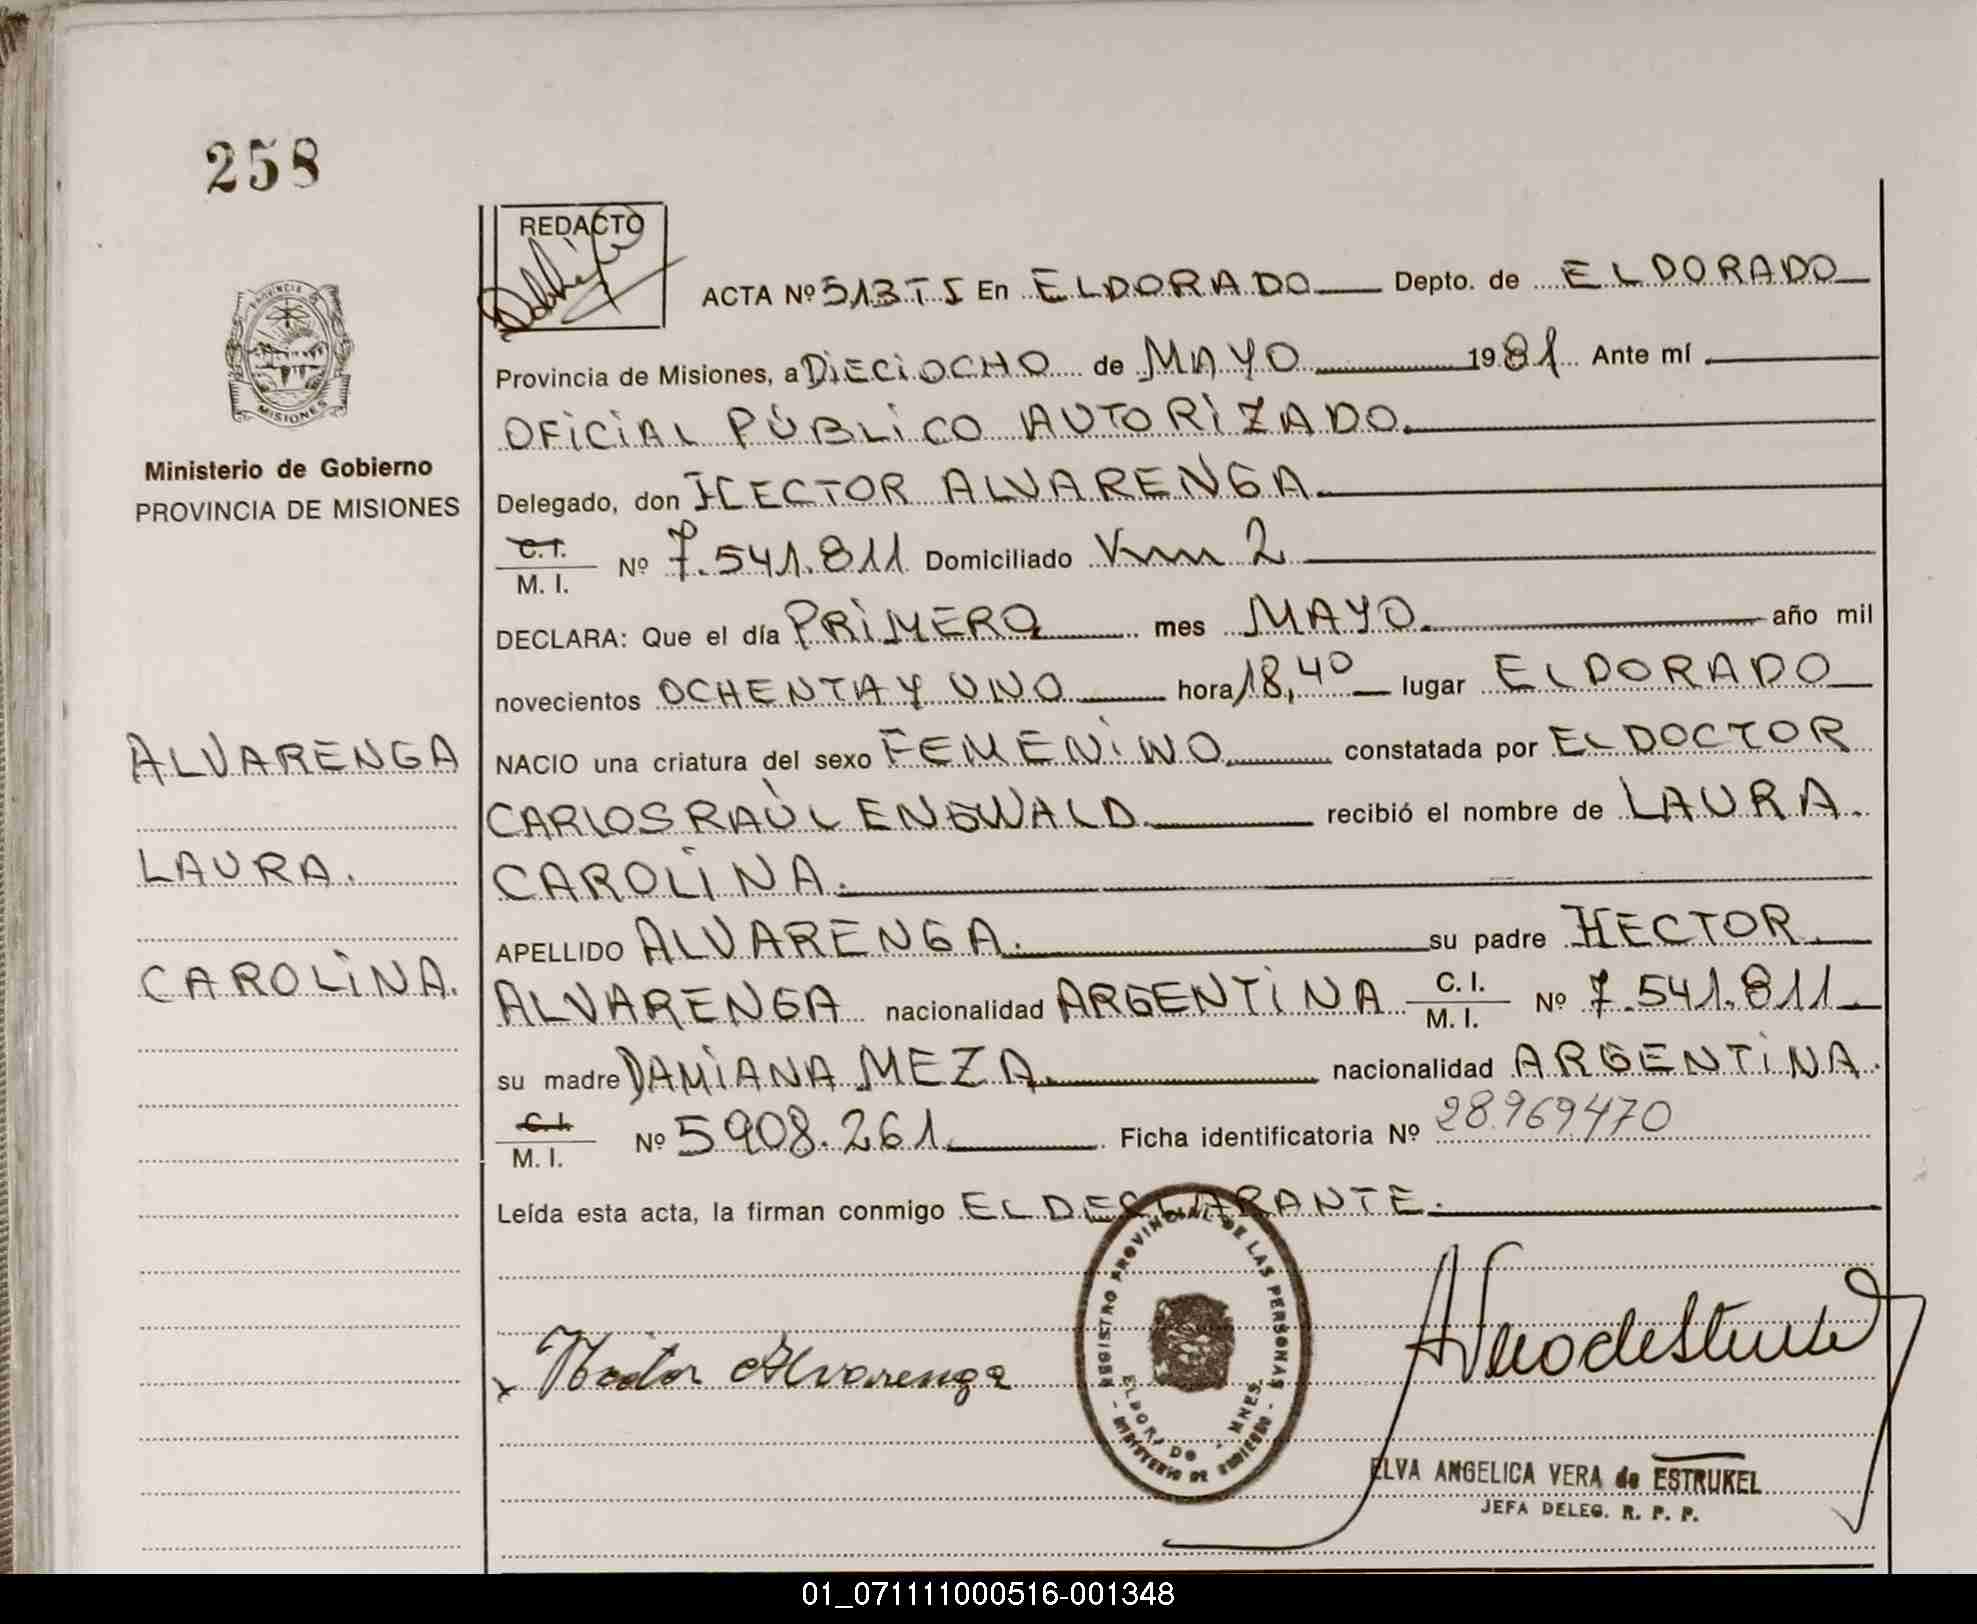 258
REDACTO
ACTA Nº 513 T I En ELDORADO Depto. de ELDORADO
Provincia de Misiones, a DIECIOCHO de MAYO 1981 Ante mí
OFICIAL PÚBLICO AUTORIZADO.
Ministerio de Gobierno
PROVINCIA DE MISIONES
Delegado, don HECTOR ALVARENGA.
C. I.
M. I. Nº 7.541.811 Domiciliado Km 2
DECLARA: Que el día PRIMERO mes MAYO. año mil
novecientos OCHENTA Y UNO hora 18,40 lugar ELDORADO
ALVARENGA
LAURA.
CAROLINA.
NACIO una criatura del sexo FEMENINO constatada por EL DOCTOR
CARLOS RAÚL ENGWALD recibió el nombre de LAURA.
CAROLINA.
APELLIDO ALVARENGA. su padre HECTOR
ALVARENGA nacionalidad ARGENTINA C. I.
M. I. Nº 7.541.811
su madre DAMIANA MEZA. nacionalidad ARGENTINA.
C. I.
M. I. Nº 5908.261. Ficha identificatoria Nº 28.969.470
Leída esta acta, la firman conmigo EL DECLARANTE.
Hector Alvarenga
REGISTRO PROVINCIAL DE LAS PERSONAS
ELDORADO - MNES.
- MINISTERIO DE GOBIERNO -
ELVA ANGELICA VERA de ESTRUKEL
JEFA DELEG. R. P. P.
01_071111000516-001348